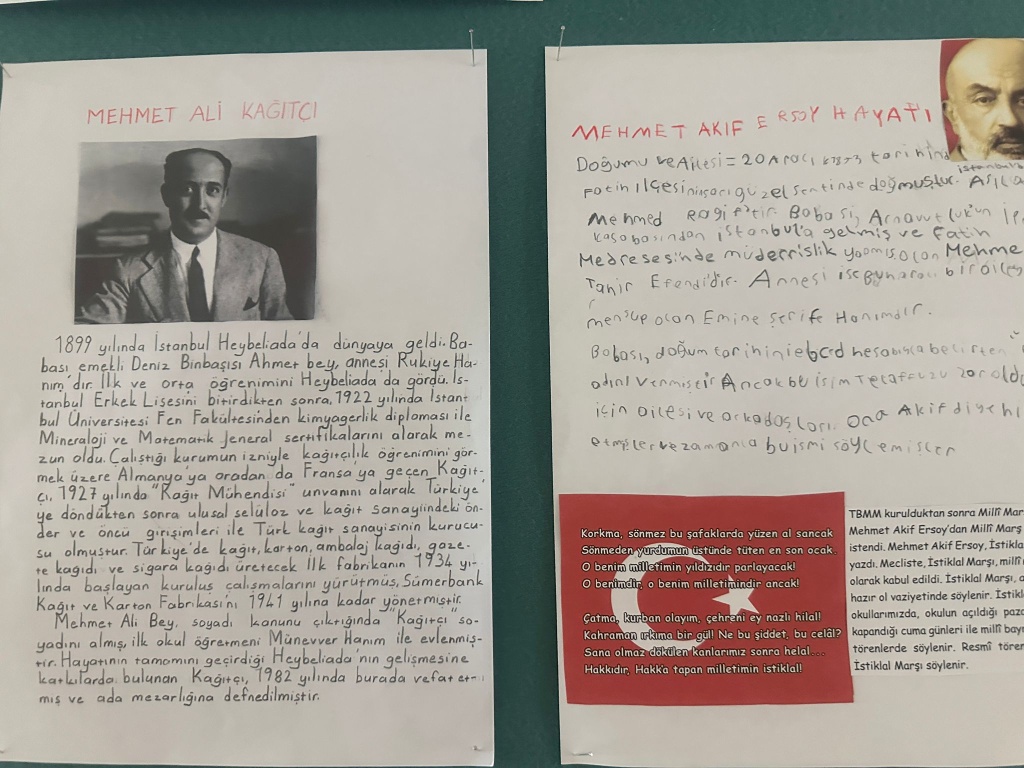 MEHMET ALİ KAĞITÇI
1899 yılında İstanbul Heybeliada'da dünyaya geldi. Ba-
bası emekli Deniz Binbaşısı Ahmet bey, annesi Rukiye Ha-
nım'dır. İlk ve orta öğrenimini Heybeliada'da gördü. İs-
tanbul Erkek Lisesini bitirdikten sonra, 1922 yılında İstan-
bul Üniversitesi Fen Fakültesinden kimyagerlik diploması ile
Mineraloji ve Matematik Jeneral sertifikalarını alarak me-
zun oldu. Çalıştığı kurumun izniyle kağıtçılık öğrenimini gör-
mek üzere Almanya'ya oradan da Fransa'ya geçen Kağıt-
çı, 1927 yılında "Kağıt Mühendisi" unvanını alarak Türkiye'
ye döndükten sonra ulusal selüloz ve kağıt sanayiindeki ön-
der ve öncü girişimleri ile Türk kağıt sanayisinin kurucu-
su olmuştur. Türkiye'de kağıt, karton, ambalaj kağıdı, gaze-
te kağıdı ve sigara kağıdı üretecek İlk fabrikanın 1934 yı-
lında başlayan kuruluş çalışmalarını yürütmüş, Sümerbank
Kağıt ve Karton Fabrikası'nı 1941 yılına kadar yönetmiştir.
Mehmet Ali Bey, soyadı kanunu çıktığında "Kağıtçı" so-
yadını almış, ilk okul öğretmeni Münevver Hanım ile evlenmiş-
tir. Hayatının tamamını geçirdiği Heybeliada'nın gelişmesine
katkılarda bulunan Kağıtçı, 1982 yılında burada vefat et-
miş ve ada mezarlığına defnedilmiştir.
MEHMET AKIF ERSOY HAYATI
Doğumu ve Ailesi = 20 Aralı 1873 tarihind
istanbul
Fatih İlçesinin güzel semtinde doğmuştur. Asıl a
Mehmed Ragif'tir. Babası, Arnavutluk'un İp
kasabasından istanbul'a gelmiş ve Fatih
Medresesinde müderrislik yapmış olan Mehme
Tahir Efendi'dir. Annesi ise bir aileye
mensup olan Emine Şerife Hanımdır.
Babası, doğum tarihini ebced hesabıyla belirten
adını vermiştir Ancak bu isim Telaffuzu zor oldu
için ailesi ve arkadaşları ona Akif diye hi
etmişler ve zamanla bu ismi söylemişler
Korkma, sönmez bu şafaklarda yüzen al sancak
Sönmeden yurdumun üstünde tüten en son ocak.
O benim milletimin yıldızıdır parlayacak!
O benimdir, o benim milletimindir ancak!
Çatma, kurban olayım, çehreni ey nazlı hilal!
Kahraman ırkıma bir gül! Ne bu şiddet, bu celâl?
Sana olmaz dökülen kanlarımız sonra helal...
Hakkıdır, Hakk'a tapan milletimin istiklal!
TBMM kurulduktan sonra Millî Mar
Mehmet Akif Ersoy'dan Millî Marş
istendi. Mehmet Akif Ersoy, İstikla
yazdı. Mecliste, İstiklal Marşı, millî
olarak kabul edildi. İstiklal Marşı, a
hazır ol vaziyetinde söylenir. İstikl
okullarımızda, okulun açıldığı paza
kapandığı cuma günleri ile millî bay
törenlerde söylenir. Resmî tören
İstiklal Marşı söylenir.